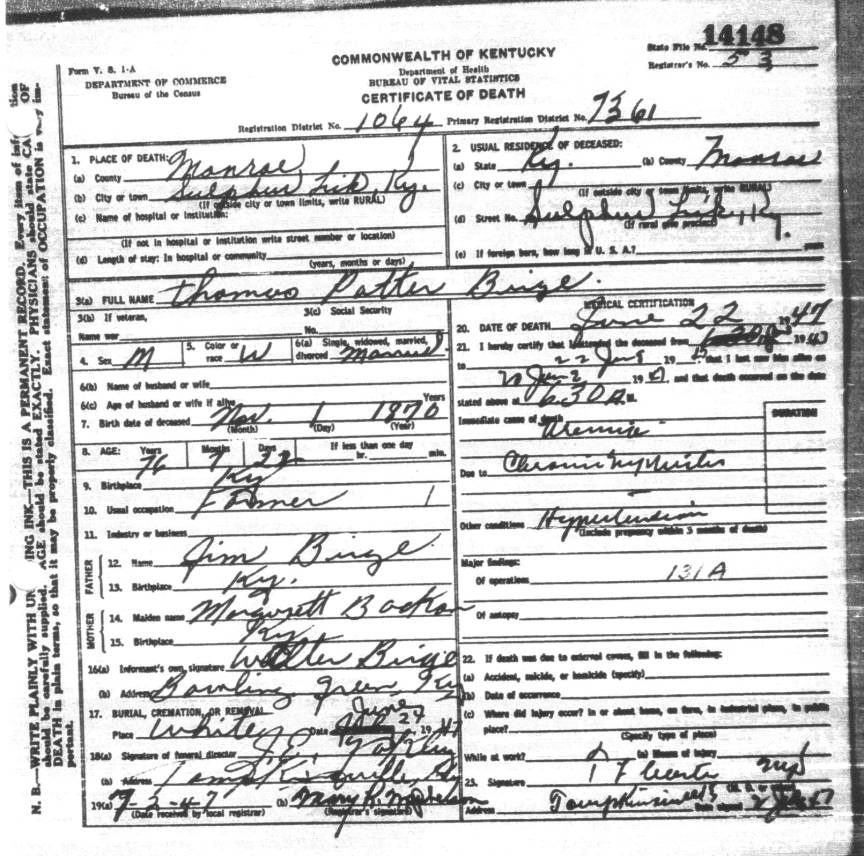 14148
COMMONWEALTH OF KENTUCKY
State File No.
Form V. S. 1-A
Department of Health
Registrar's No. 53
DEPARTMENT OF COMMERCE
BUREAU OF VITAL STATISTICS
Bureau of the Census
CERTIFICATE OF DEATH
Registration District No. 1064 Primary Registration District No. 7361
1. PLACE OF DEATH:
(a) County Monroe
(b) City or town Sulphur Lick, Ky.
(If outside city or town limits, write RURAL)
(c) Name of hospital or institution:
(If not in hospital or institution write street number or location)
(d) Length of stay: In hospital or community
(years, months or days)
2. USUAL RESIDENCE OF DECEASED:
(a) State Ky. (b) County Monroe
(c) City or town
(If outside city or town limits, write RURAL)
(d) Street No. Sulphur Lick, Ky.
(If rural give precinct)
(e) If foreign born, how long in U. S. A.? years
3(a) FULL NAME Thomas Potter Birge.
3(b) If veteran,
3(c) Social Security
Name war
No.
4. Sex M
5. Color or race W
6(a) Single, widowed, married, divorced Married
6(b) Name of husband or wife
6(c) Age of husband or wife if alive Years
7. Birth date of deceased Nov. 1 1870
(Month) (Day) (Year)
8. AGE: Years Months Days If less than one day
76 7 22 hr. min.
9. Birthplace Ky
10. Usual occupation Farmer 1
11. Industry or business
FATHER
12. Name Jim Birge.
13. Birthplace Ky.
MOTHER
14. Maiden name Margurett
15. Birthplace Ky
16(a) Informant's own signature Walter Birge
(b) Address Bowling green, Ky
17. BURIAL, CREMATION, OR REMOVAL
Place White Date June 24 1947
18(a) Signature of funeral director
(b) Address Tompkinsville, Ky
19(a) 7-2-47 (b) Mary K.
(Date received by local registrar) (Registrar's signature)
MEDICAL CERTIFICATION
20. DATE OF DEATH June 22 1947
21. I hereby certify that I attended the deceased from
to 22 19 that I last saw him alive on
19 47, and that death occurred on the date
stated above at 6:30 A M.
Immediate cause of death
Uremia
DURATION
Due to Chronic Nephritis
Other conditions Hypertension
(Include pregnancy within 3 months of death)
Major findings:
Of operations 131A
Of autopsy
22. If death was due to external causes, fill in the following:
(a) Accident, suicide, or homicide (specify)
(b) Date of occurrence
(c) Where did injury occur? In or about home, on farm, in industrial place, in public place?
(Specify type of place)
While at work? (e) Means of injury
23. Signature
Address Tompkinsville Date signed
N. B.—WRITE PLAINLY WITH ING INK—THIS IS A PERMANENT RECORD. Every item of
should be carefully supplied. AGE should be stated EXACTLY. PHYSICIANS should state OF
DEATH in plain terms, so that it may be properly classified. Exact statement of OCCUPATION is very im-
portant.